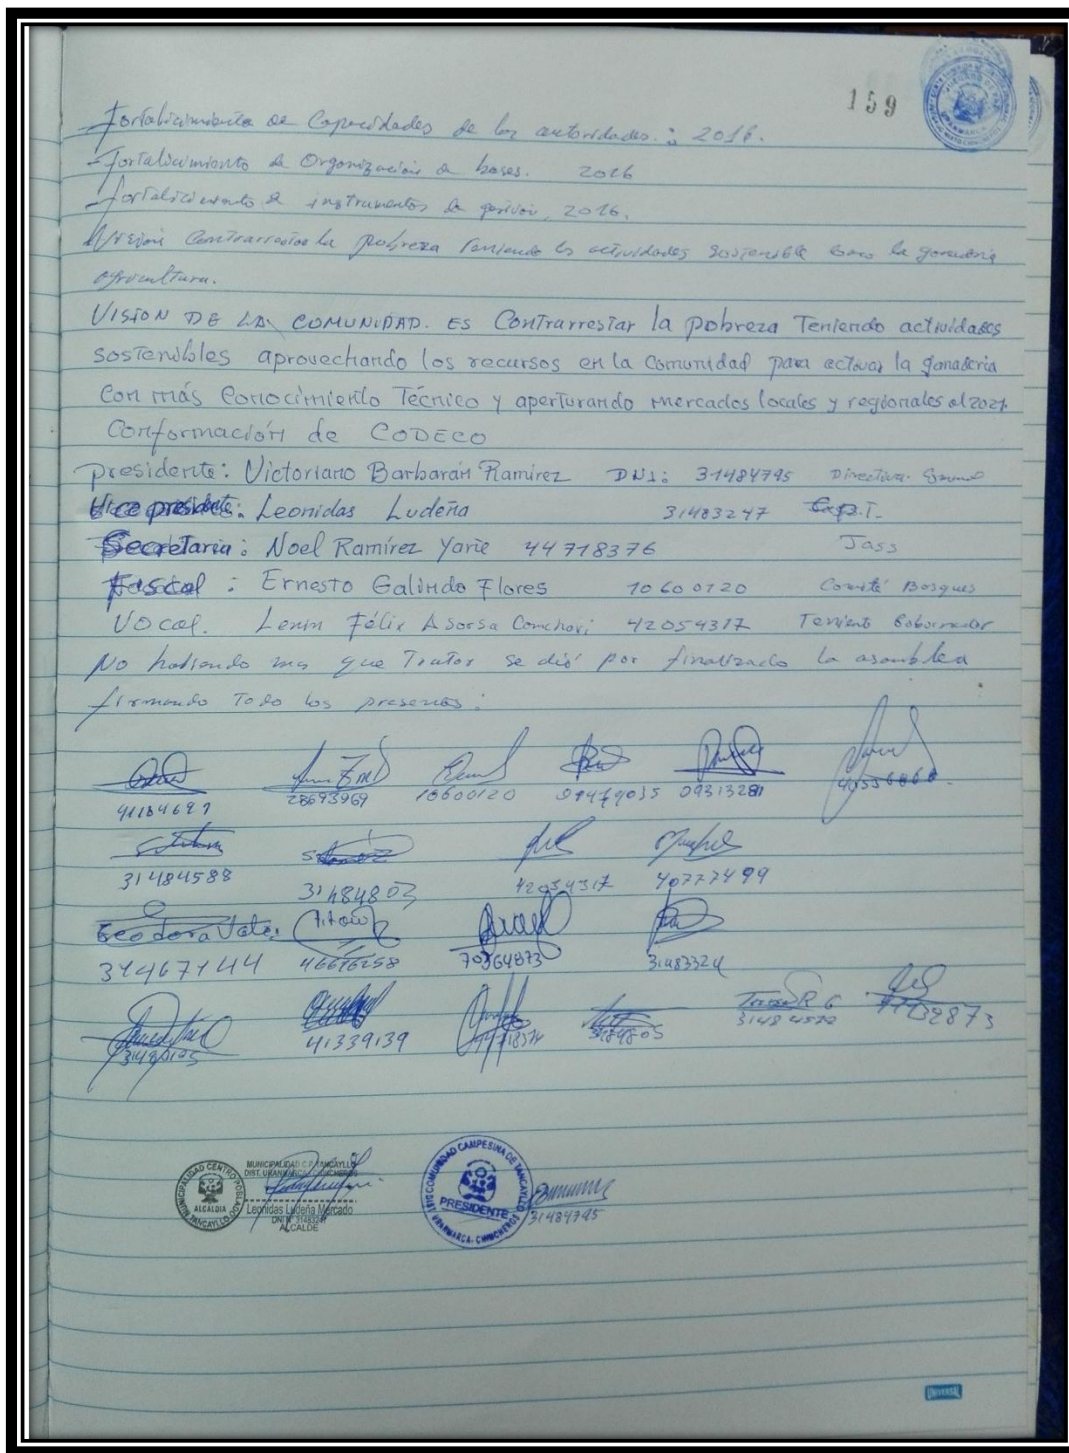 159
Fortalicimiento de Capacidades de las autoridades. : 2016.
- Fortalicimiento de Organización de bases. 2016
- fortalicimiento de instrumentos de gestión, 2016.
Contrarrestar la pobreza Teniendo las actividades sostenible como la ganadería
agricultura.
VISION DE LA COMUNIDAD. ES Contrarrestar la pobreza Teniendo actividades
sostenibles aprovechando los recursos en la Comunidad para activar la ganadería
con más Conocimiento Técnico y aperturando mercados locales y regionales al 2021.
Conformación de CODECO
presidente: Victoriano Barbarán Ramírez DNI: 31484795 Directiva
Vice presidente: Leonidas Ludeña 31483247
Secretaria: Noel Ramírez Yarie 44718376 Jass
Fiscal : Ernesto Galindo Flores 10600120 Comité Bosques
Vocal. Lenin Félix Asorsa 42054317 Teniente Gobernador
No habiendo mas que Tratar se dió por finalizado la asamblea
firmando Todo los presentes:
41184697 28693969 10600120 09479035 09313281
31484588 31484803 42054317 40777499
Teodora
31467144 46616258 70364873 31483324
41339139 31484805
MUNICIPALIDAD C.P. TANCAYLLO
DIST. URANMARCA - CHINCHEROS
Leonidas Ludeña Mercado
DNI N° 31483247
ALCALDE
MUNICIPALIDAD CENTRO POBLADO
ALCALDIA
TANCAYLLO
COMUNIDAD CAMPESINA DE TANCAYLLO
PRESIDENTE
URANMARCA - CHINCHEROS
31484795
UNIVERSAL